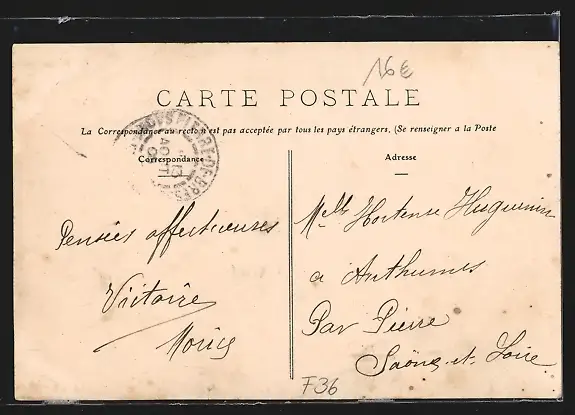 16€
CARTE POSTALE
La Correspondance au recto n'est pas acceptée par tous les pays étrangers. (Se renseigner a la Poste
PIERRE-DE-BRESSE
Correspondance
Adresse
Pensées affectueuses
Victoire
Melle Hortense Huguenin
a Authumes
Par Pierre
Saône-et-Loire
F36